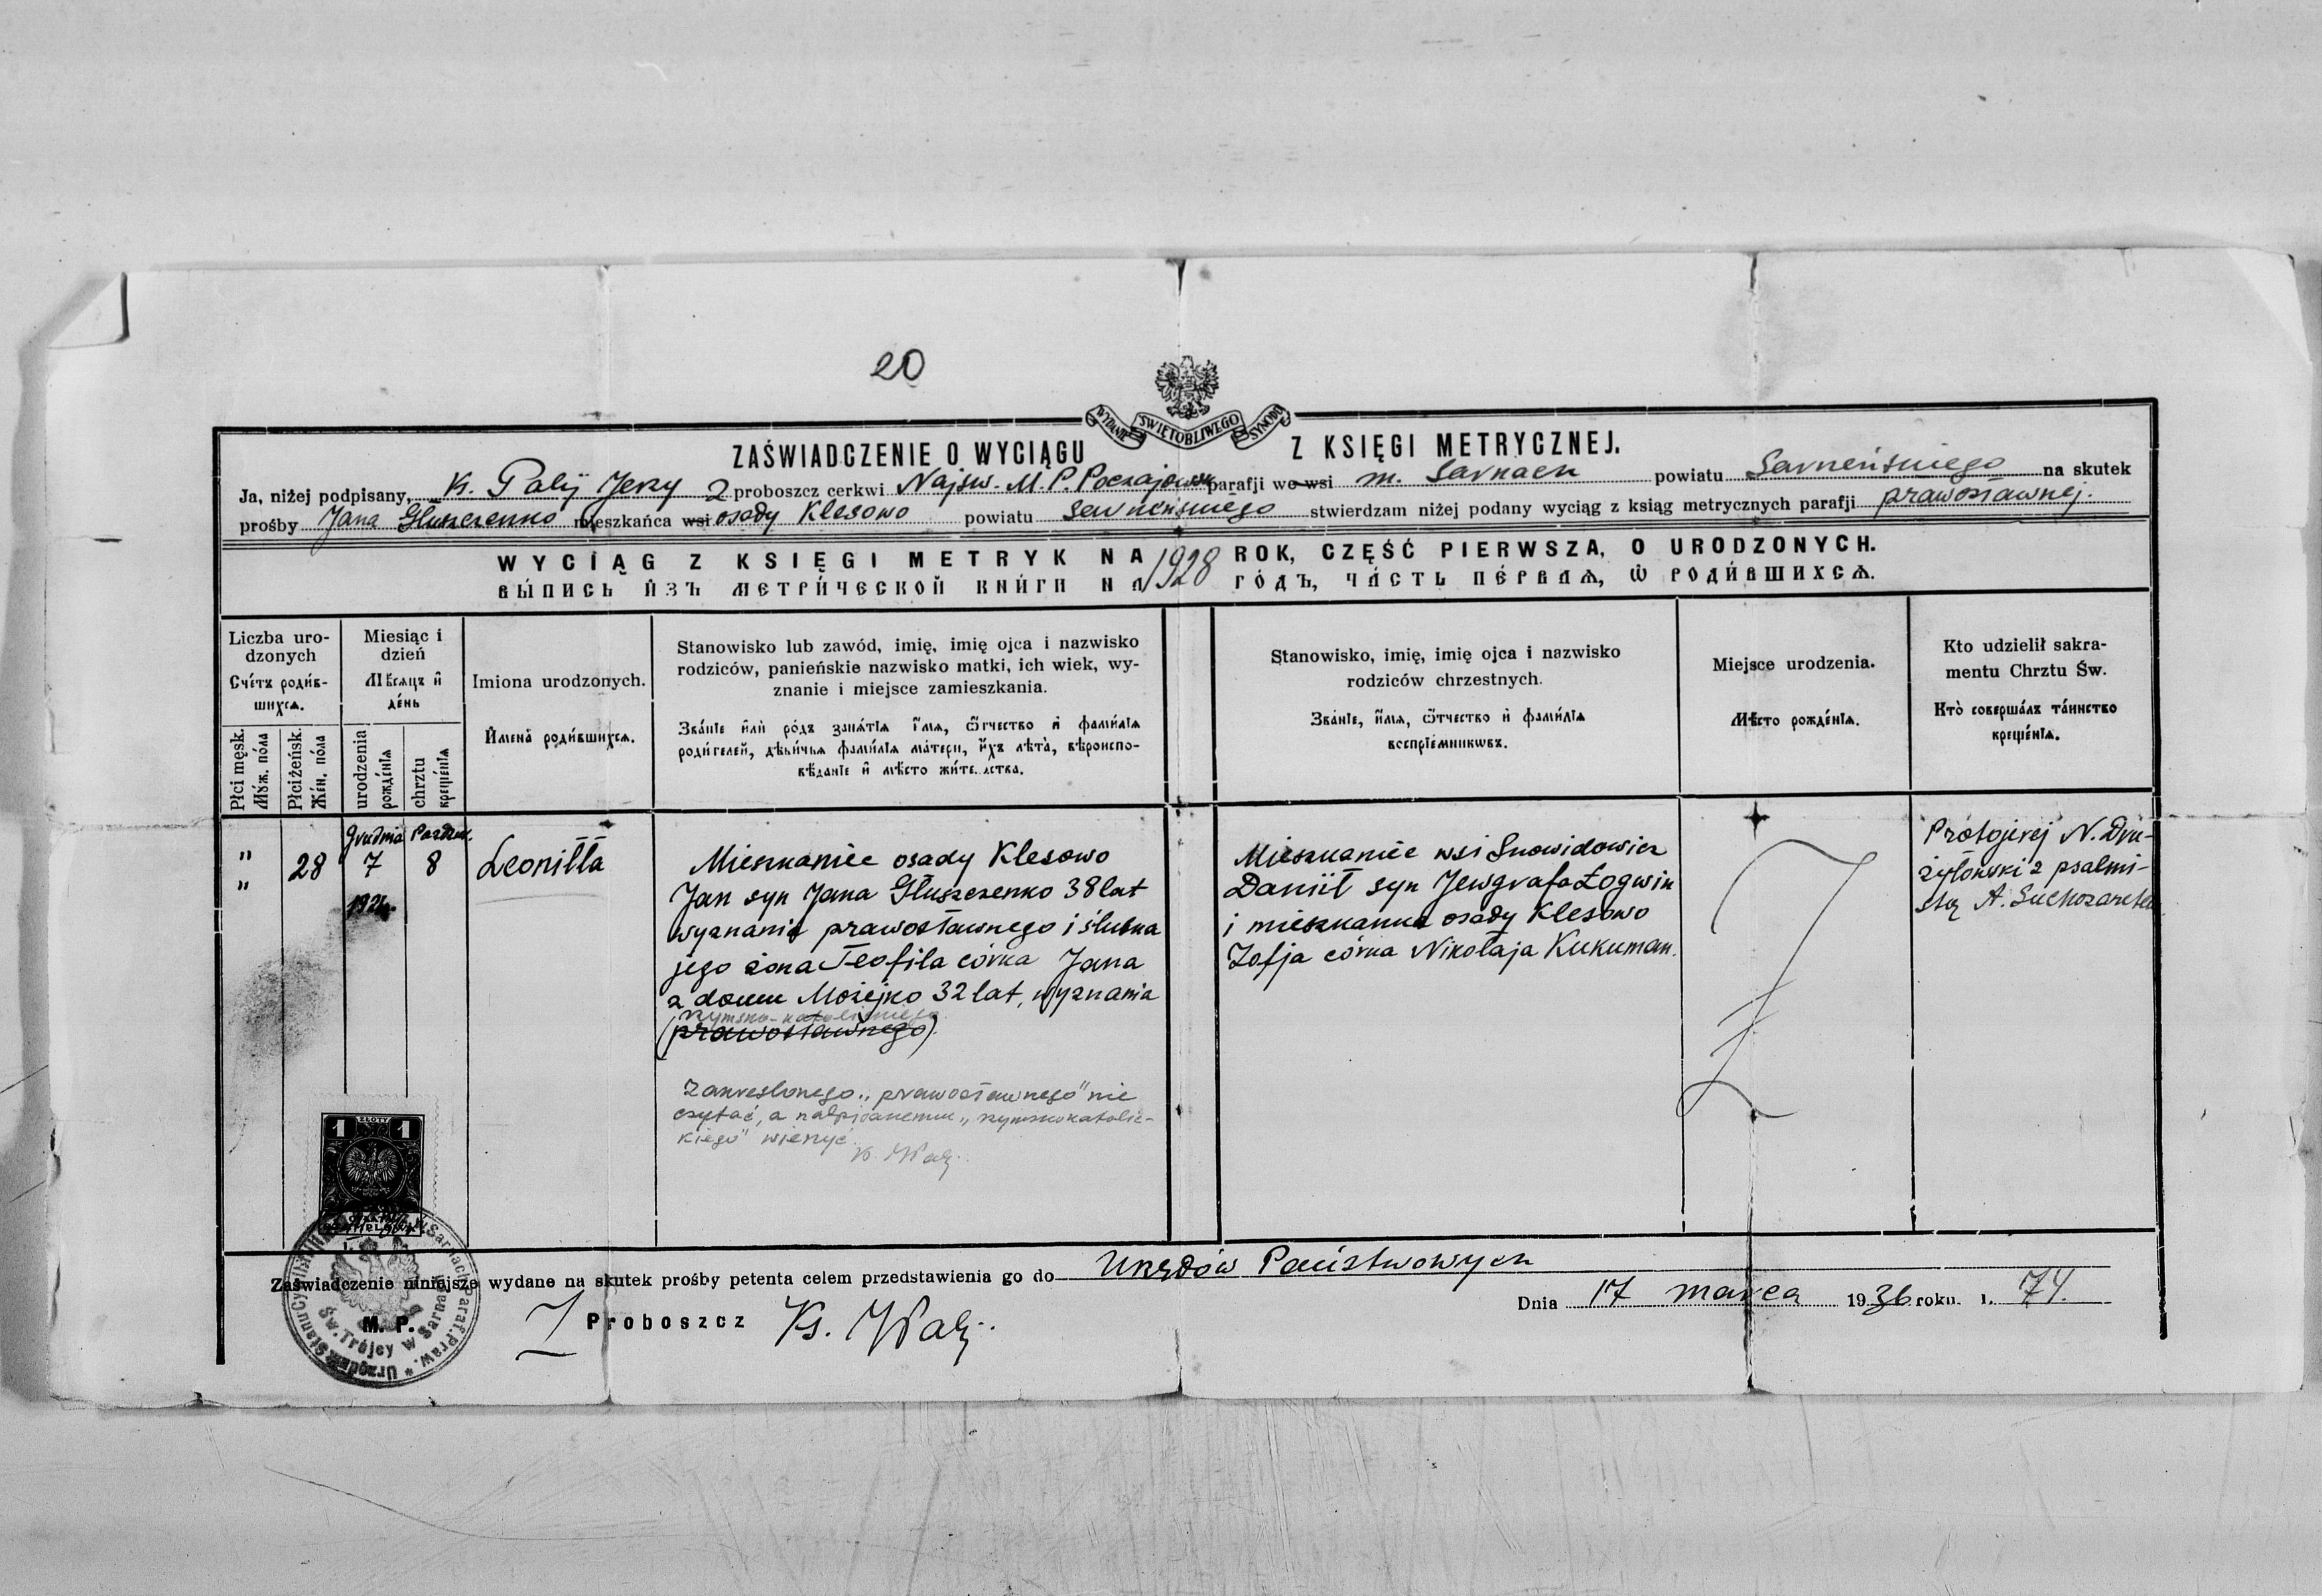 20
WYDANIE ŚWIĘTOBLIWEGO SYNODU
ZAŚWIADCZENIE O WYCIĄGU Z KSIĘGI METRYCZNEJ.
Ja, niżej podpisany, Ks. Palij Jerzy proboszcz cerkwi Najśw. M. P. Poczajowsk. parafji we wsi m. Sarnach powiatu Sarneńskiego na skutek
prośby Jana Głuszczenko mieszkańca wsi osady Klesowo powiatu sarneńskiego stwierdzam niżej podany wyciąg z ksiąg metrycznych parafji prawosławnej.
WYCIĄG Z KSIĘGI METRYK NA 1928 ROK, CZĘŚĆ PIERWSZA, O URODZONYCH.
ВЫ́ПИСЬ И҆ЗЪ МЕТРИ́ЧЕСКОЙ КНИ́ГИ НА ГО́ДЪ, ЧА́СТЬ ПЕ́РВАѦ, Ѡ҆ РОДИ́ВШИХСѦ.
Liczba uro-
dzonych
Сче́тъ роди́в-
шихсѧ.
Miesiąc i
dzień
Мѣ́сѧцъ и҆
де́нь
Płci męsk.
Мꙋ́ж. по́ла
Płci żeńsk.
Же́н. по́ла
urodzenia
рожде́нїѧ
chrztu
креще́нїѧ
Imiona urodzonych.
И҆мена̀ роди́вшихсѧ.
Stanowisko lub zawód, imię, imię ojca i nazwisko
rodziców, panieńskie nazwisko matki, ich wiek, wy-
znanie i miejsce zamieszkania.
Зва́нїе и҆лѝ ро́дъ занѧ́тїѧ и҆́мѧ, ѻ҆́тчество и҆ фами́лїѧ
роди́телей, дѣви́чьѧ фами́лїѧ ма́тери, и҆́хъ лѣта̀, вѣроиспо-
вѣ́данїе и҆ мѣ́сто жи́тельства.
Stanowisko, imię, imię ojca i nazwisko
rodziców chrzestnych.
Зва́нїе, и҆́мѧ, ѻ҆́тчество и҆ фами́лїѧ
воспрїе́мникѡвъ.
Miejsce urodzenia.
Мѣ́сто рожде́нїѧ.
Kto udzielił sakra-
mentu Chrztu Św.
Кто̀ соверша́лъ та́инство
креще́нїѧ.
" 28 Grudnia 7 Paźdz. 8
"
Leoniłła
Mieszkaniec osady Klesowo
Jan syn Jana Głuszczenko 38 lat
wyznania prawosławnego i ślubna
jego żona Teofila córka Jana
z domu Możejko 32 lat, wyznania
rzymsko-katolickiego
(prawosławnego).
Zakreślonego „prawosławnego" nie
czytać, a nadpisanemu „rzymskokatolic-
kiego" wierzyć
Mieszkaniec wsi Snowidowicz
Daniił syn Jewgrafa Łogwin
i mieszkanka osady Klesowo
Zofja córka Nikołaja Kukuman.
Protojerej N. Dru-
żyłowski z psalmi-
stą
1 ZŁOTY 1
Zaświadczenie niniejsze wydane na skutek prośby petenta celem przedstawienia go do Urzędów Państwowych
Dnia 17 marca 1936 roku. l. 74.
M. P.
Proboszcz Ks. JPalij.
Św. Trójcy w Sarnach